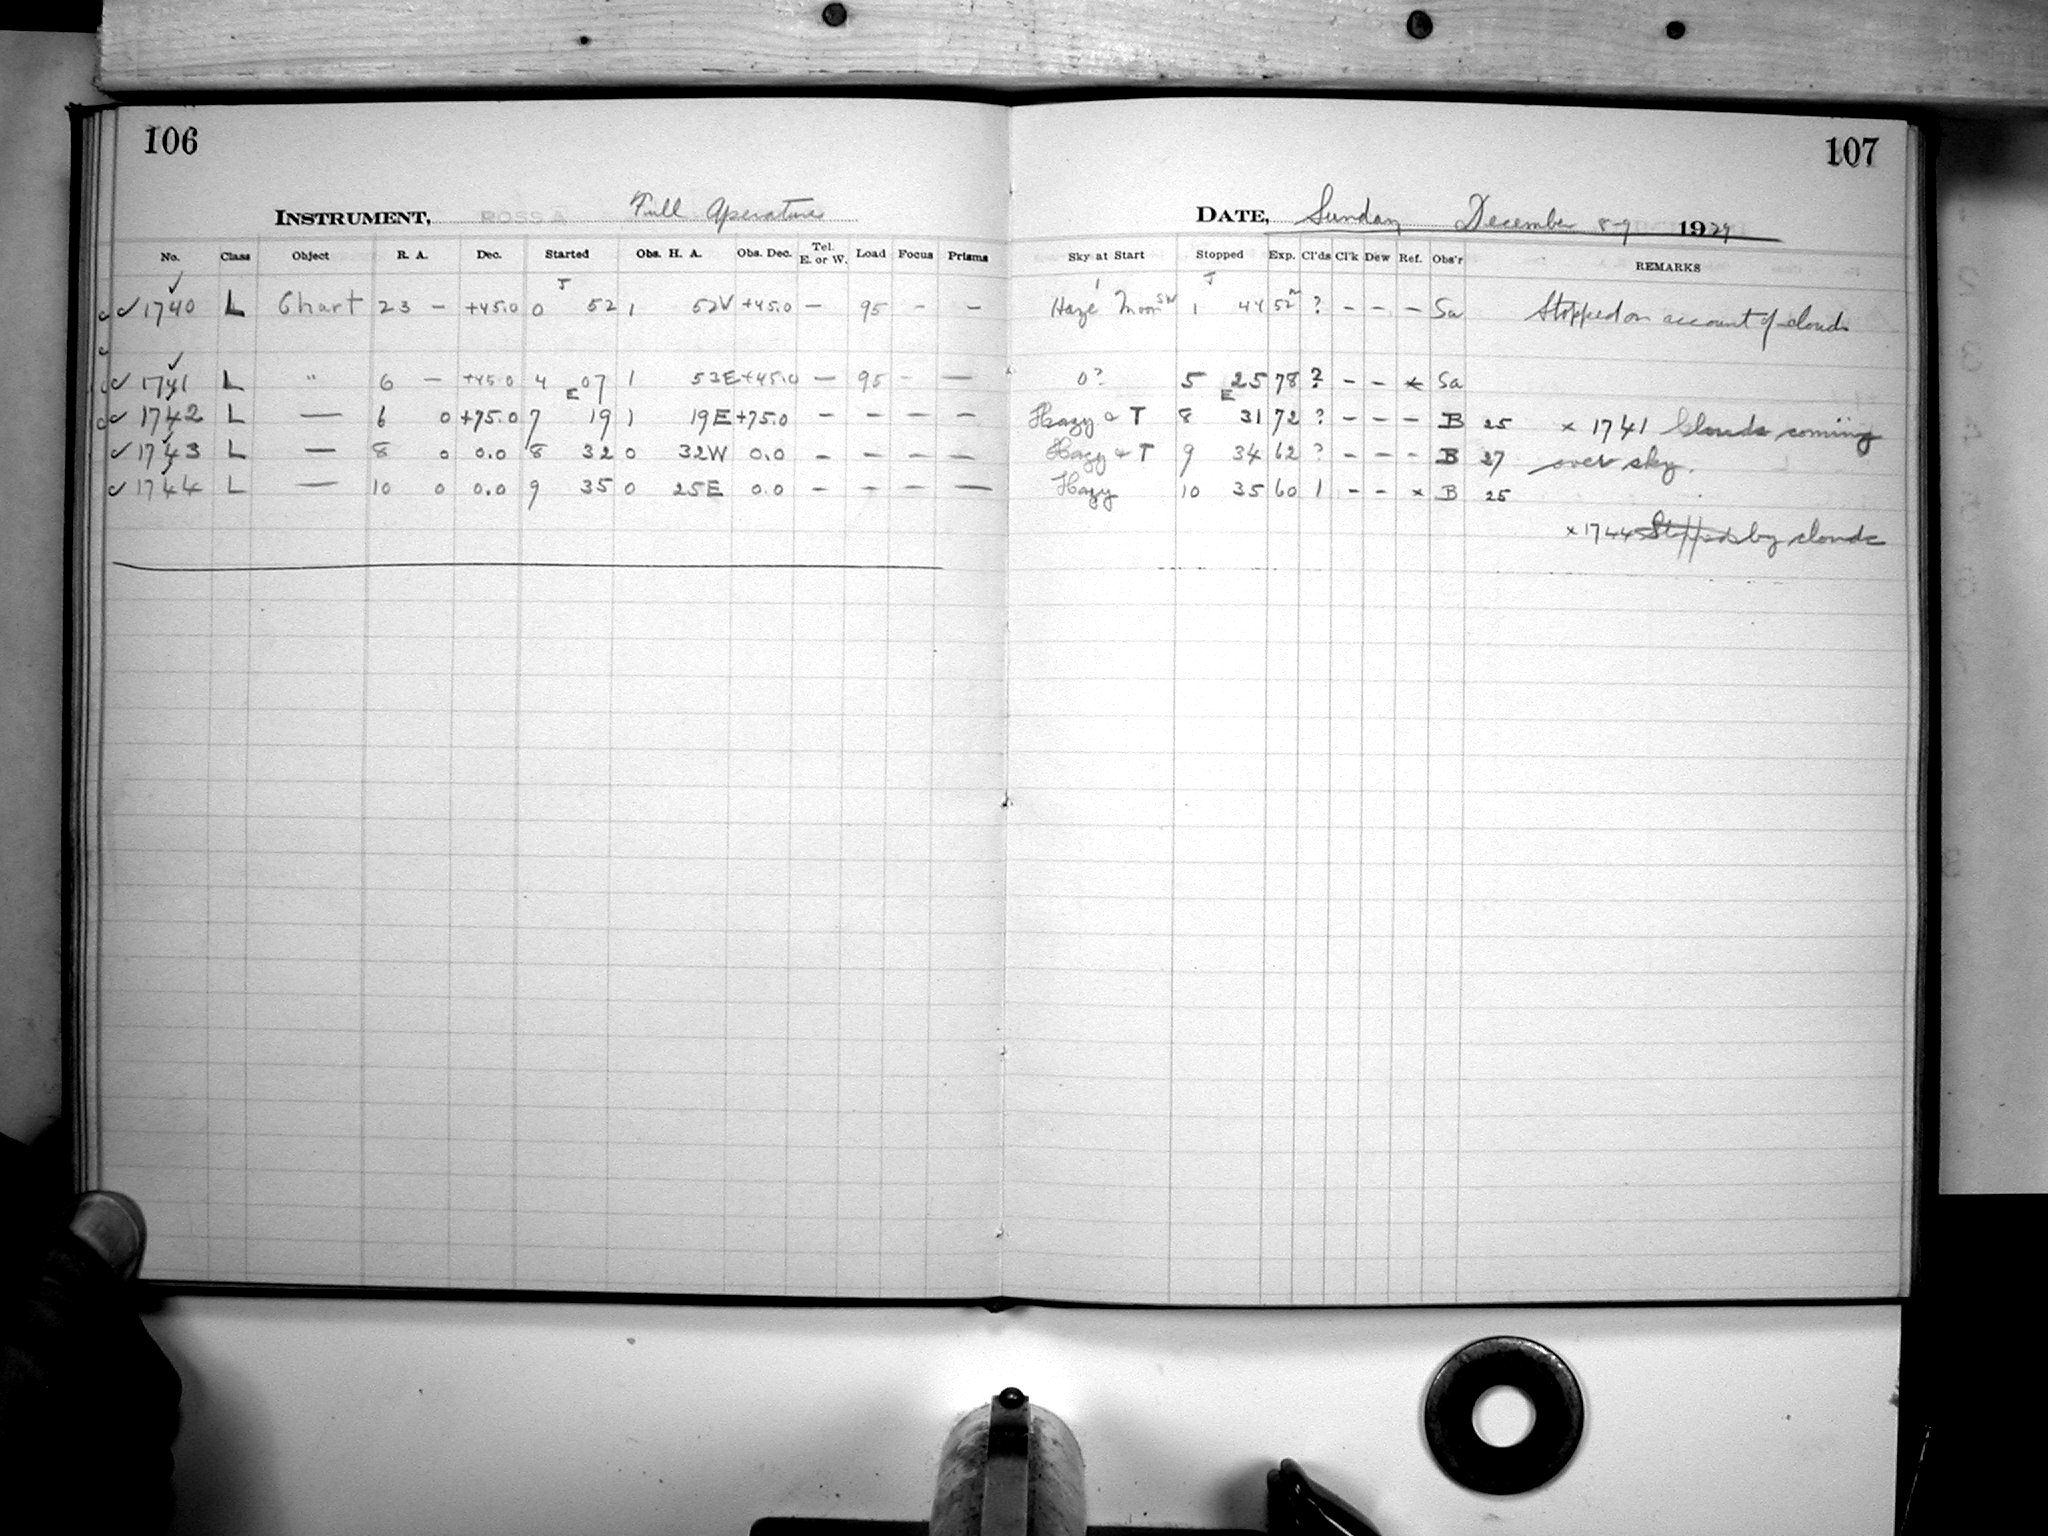 106
107
INSTRUMENT, ROSS A Full Aperature
DATE, Sunday December 8-9 1929
No. Class Object R. A. Dec. Started Obs. H. A. Obs. Dec. Tel. E. or W. Load Focus Prisms Sky at Start Stopped Exp. Cl'ds Cl'k Dew Ref. Obs'r REMARKS
✓ 1740 L Chart 23 — +45.0 0 J 52 1 52W +45.0 — 95 - — Haze 1 Moon SW 1 J 44 52m ? - - - Sa Stopped on account of clouds
✓ 1741 L " 6 — +45.0 4 E 07 1 53E +45.0 — 95 - — 0? 5 E 25 78 ? - - x Sa
✓ 1742 L — 6 0 +75.0 7 19 1 19E +75.0 - - - - Hazy & T 8 31 72 ? - - - B 25 x 1741 Clouds coming
✓ 1743 L — 8 0 0.0 8 32 0 32W 0.0 - - - - Hazy & T 9 34 62 ? - - - B 27 over sky.
✓ 1744 L — 10 0 0.0 9 35 0 25E 0.0 - - - — Hazy 10 35 60 1 - - x B 25
x 1744 Stopped by clouds